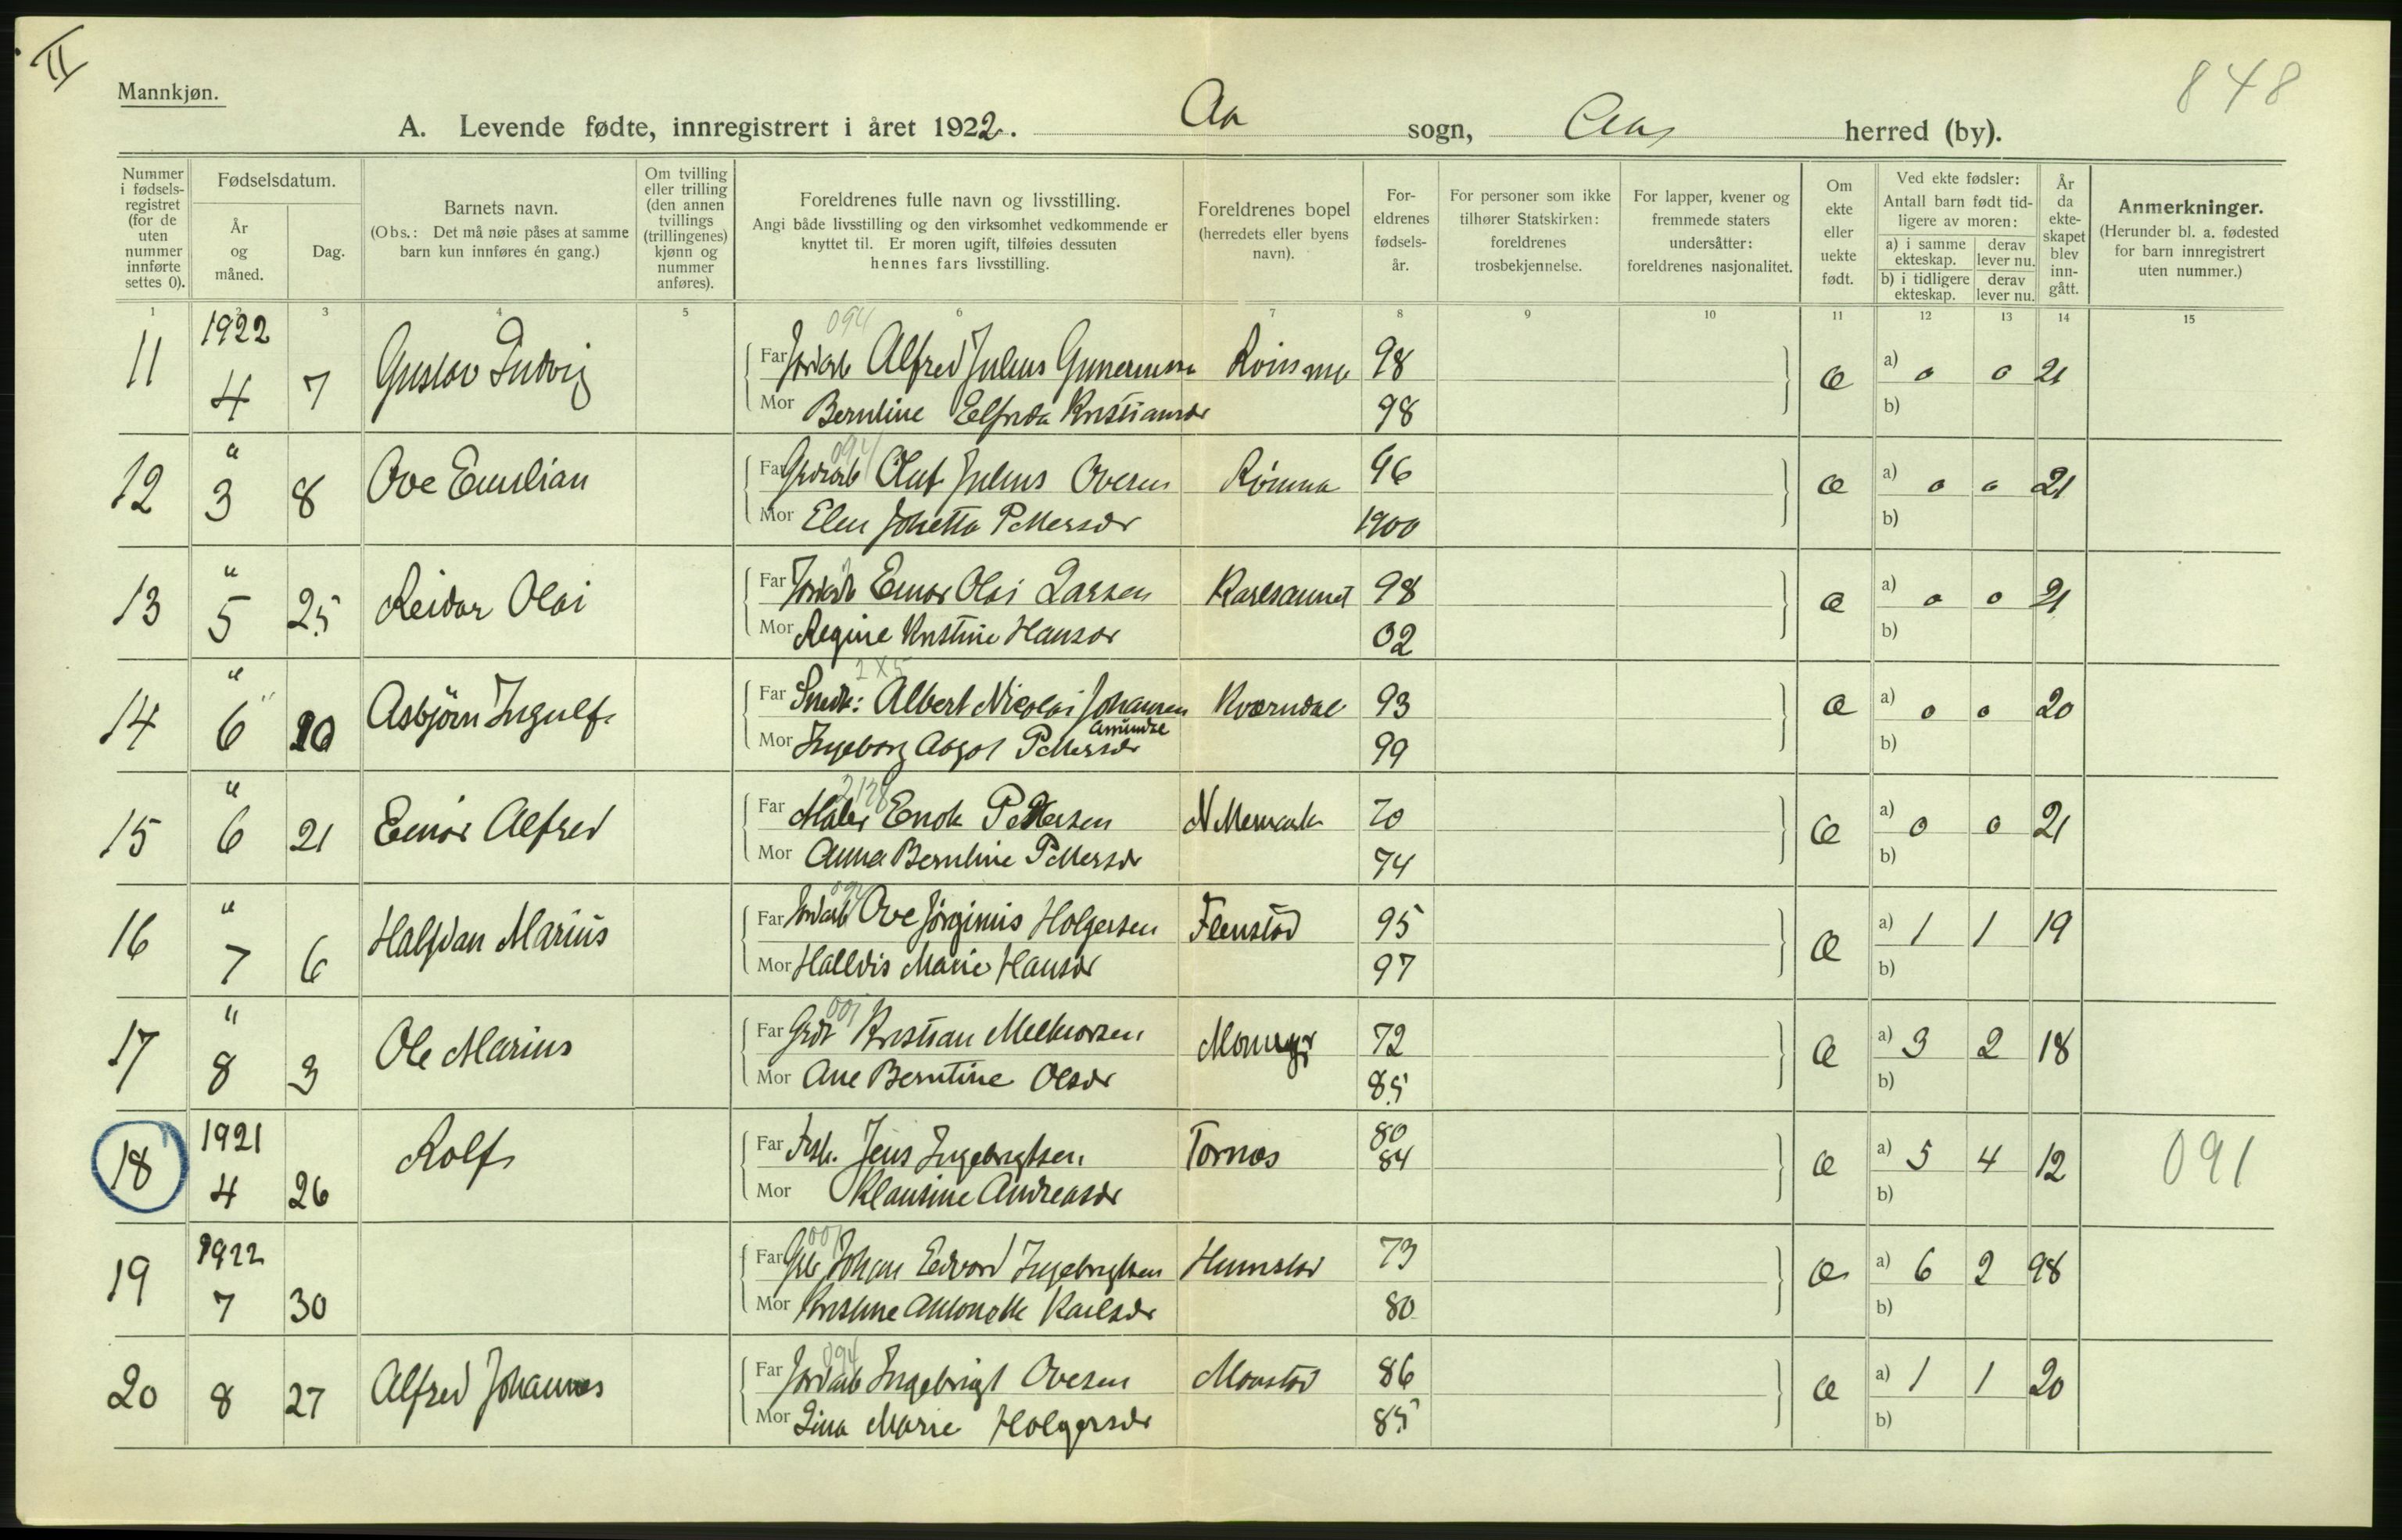 II
848
Mannkjøn.
A. Levende fødte, innregistrert i året 1922. Aa sogn, Aa herred (by).
Nummer i fødsels-registret (for de uten nummer innførte settes 0).
Fødselsdatum.
År og måned.
Dag.
Barnets navn.
(Obs.: Det må nøie påses at samme barn kun innføres én gang.)
Om tvilling eller trilling (den annen tvillings (trillingenes) kjønn og nummer anføres).
Foreldrenes fulle navn og livsstilling.
Angi både livsstilling og den virksomhet vedkommende er knyttet til. Er moren ugift, tilføies dessuten hennes fars livsstilling.
Foreldrenes bopel (herredets eller byens navn).
For-eldrenes fødsels-år.
For personer som ikke tilhører Statskirken: foreldrenes trosbekjennelse.
For lapper, kvener og fremmede staters undersåtter: foreldrenes nasjonalitet.
Om ekte eller uekte født.
Ved ekte fødsler: Antall barn født tid-ligere av moren:
a) i samme ekteskap.
derav lever nu.
b) i tidligere ekteskap.
derav lever nu.
År da ekte-skapet blev inn-gått.
Anmerkninger.
(Herunder bl. a. fødested for barn innregistrert uten nummer.)
1 2 3 4 5 6 7 8 9 10 11 12 13 14 15
094
11 1922 4 7 Gustav Ludvig Far Jordarb Alfred Julius Gunerussen 98 Æ a) 0 0 21
Mor Berntine Elfrida Kristiansdr 98 b)
094
12 " 3 8 Ove Emilian Far Grdarb Olaf Julius Ovesen 96 Æ a) 0 0 21
Mor Elen Johetta Pettersdr 1900 b)
13 " 5 25 Reidar Olai Far Jordarb Einar Olai Larsen 98 Æ a) 0 0 21
Mor Regine Kristine Hansdr 02 b)
2x5
14 " 6 20 Asbjörn Ingulf Far Smed: Albert Nicolai Johansen Kværndal 93 Æ a) 0 0 20
Mor Ingeborg Aagot Pettersdr Amundse 99 b)
15 " 6 21 Einar Alfred Far Maler Enok Pettersen 70 Æ a) 0 0 21
Mor Anna Berntine Pettersdr 74 b)
094
16 " 7 6 Halfdan Marius Far Jordarb Ove Jörginus Holgersen Flenstad 95 Æ a) 1 1 19
Mor Halldis Marie Hansdr 97 b)
001
17 " 8 3 Ole Marius Far Grdr Kristian Melkiorsen 72 Æ a) 3 2 18
Mor Ane Berntine Olsdr 85 b)
18 1921 4 26 Rolf Far Fisk. Jens Ingebrigtsen Tornes 80 84 Æ a) 5 4 12 091
Mor Klausine Andreasdr b)
001
19 1922 7 30 Far Grb Johan Edvard Ingebrigtsen 73 Æ a) 6 2 98
Mor Kristine Antonette Karlsdr 80 b)
094
20 8 27 Alfred Johannes Far Jordarb Ingebrigt Ovesen Monstad 86 Æ a) 1 1 20
Mor Lina Marie Holgersdr 85 b)